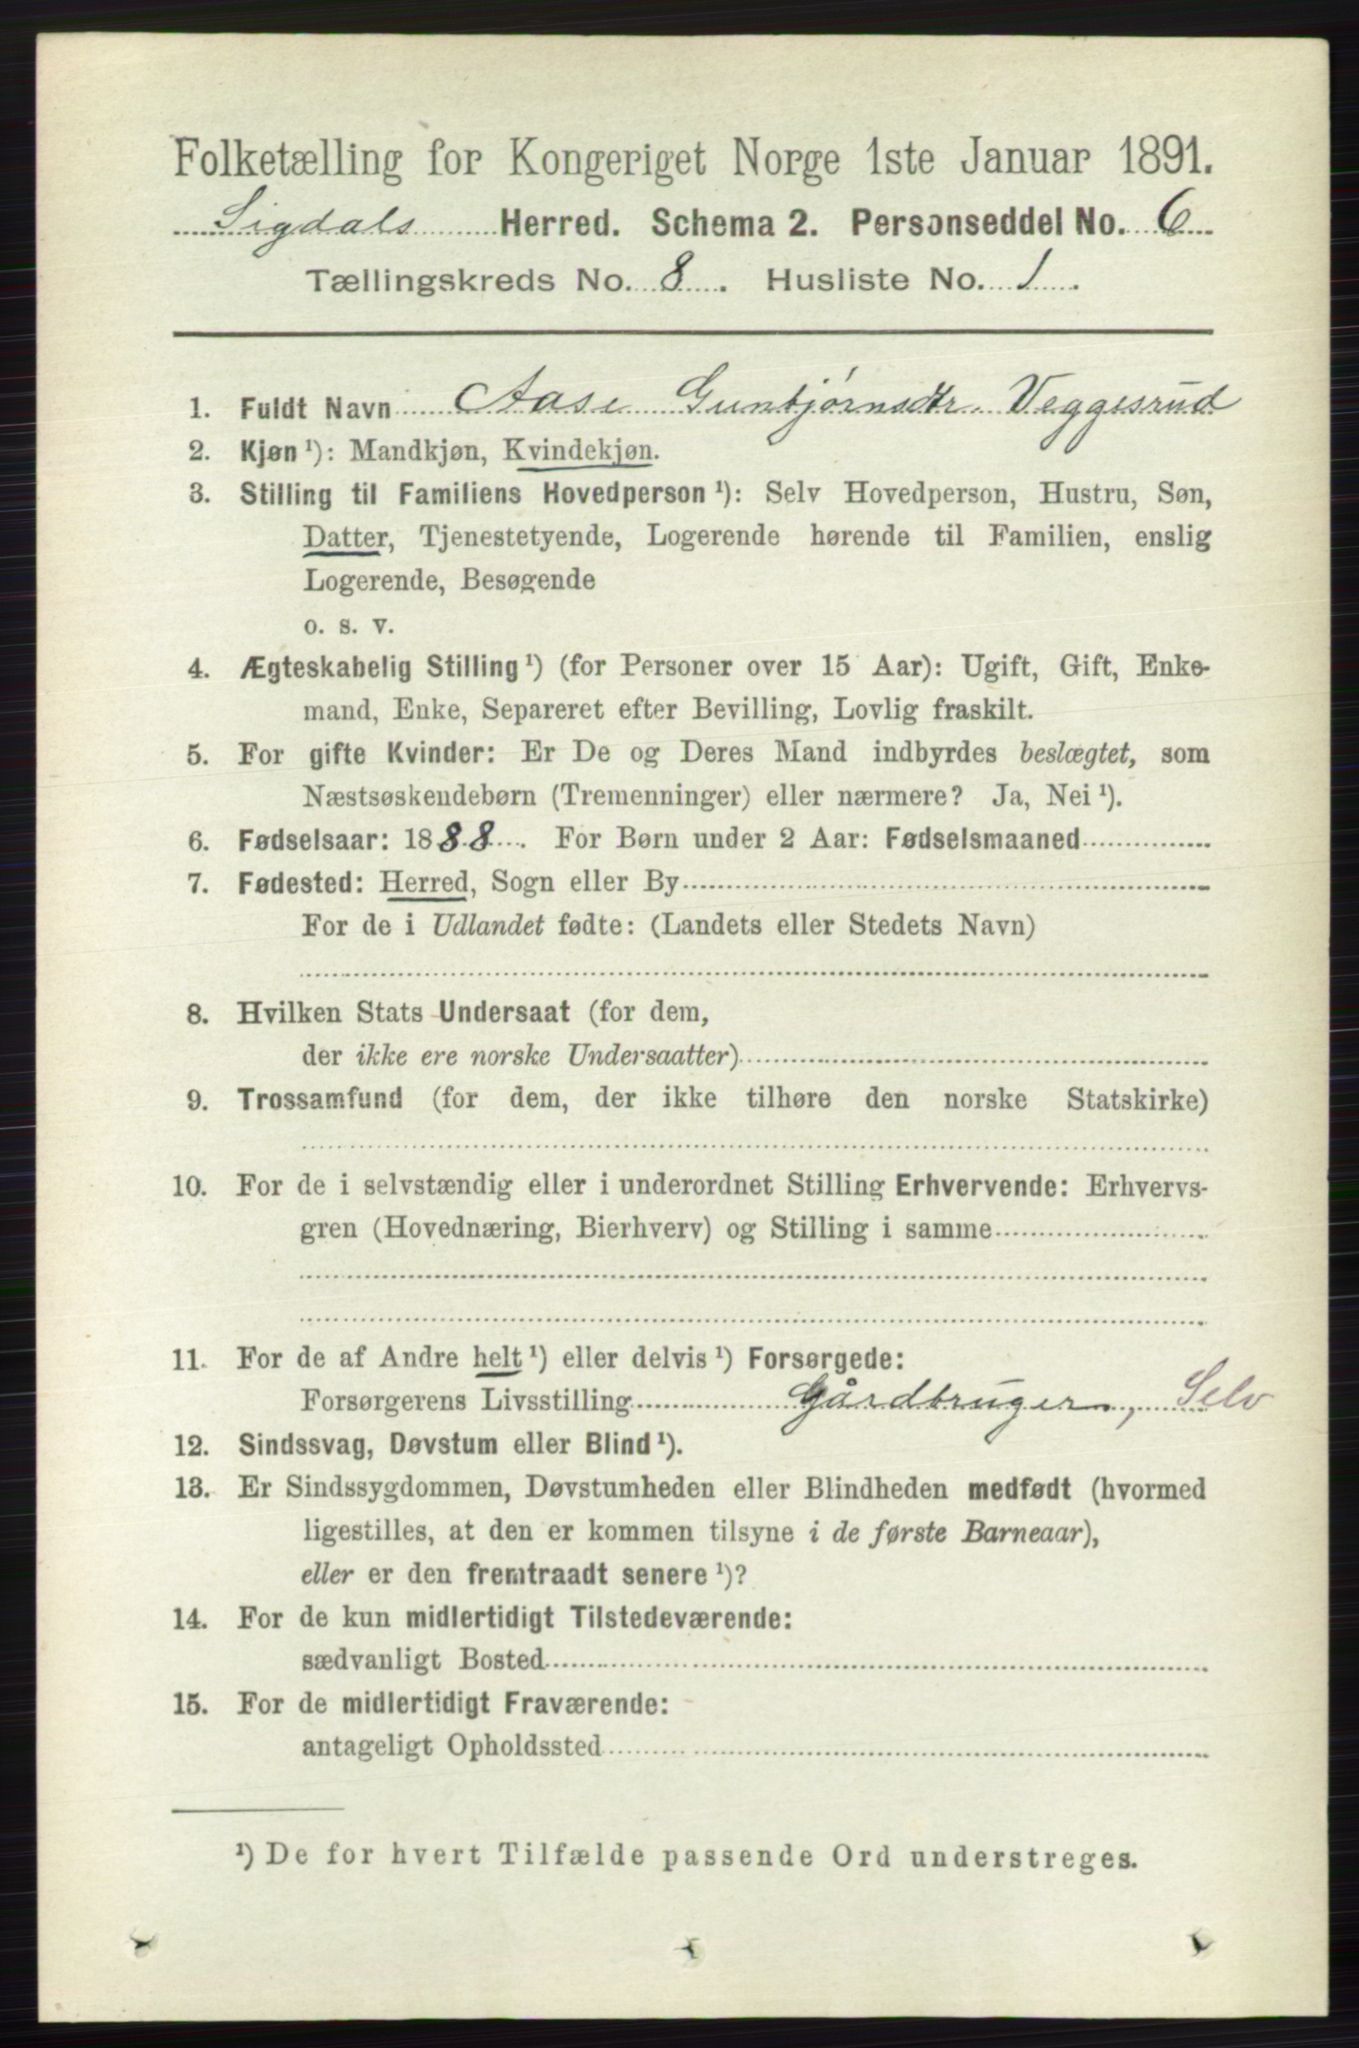 Folketælling for Kongeriget Norge 1ste Januar 1891.
Sigdals Herred. Schema 2. Personseddel No. 6
Tællingskreds No. 8. Husliste No. 1.
1. Fuldt Navn Aase Gunbjørnsdtr. Veggesrud
2. Kjøn ¹): Mandkjøn, Kvindekjøn.
3. Stilling til Familiens Hovedperson ¹): Selv Hovedperson, Hustru, Søn,
Datter, Tjenestetyende, Logerende hørende til Familien, enslig
Logerende, Besøgende
o. s. v.
4. Ægteskabelig Stilling ¹) (for Personer over 15 Aar): Ugift, Gift, Enke-
mand, Enke, Separeret efter Bevilling, Lovlig fraskilt.
5. For gifte Kvinder: Er De og Deres Mand indbyrdes beslægtet, som
Næstsøskendebørn (Tremenninger) eller nærmere? Ja, Nei ¹).
6. Fødselsaar: 1888. For Børn under 2 Aar: Fødselsmaaned
7. Fødested: Herred, Sogn eller By
For de i Udlandet fødte: (Landets eller Stedets Navn)
8. Hvilken Stats Undersaat (for dem,
der ikke ere norske Undersaatter)
9. Trossamfund (for dem, der ikke tilhøre den norske Statskirke)
10. For de i selvstændig eller i underordnet Stilling Erhvervende: Erhvervs-
gren (Hovednæring, Bierhverv) og Stilling i samme
11. For de af Andre helt ¹) eller delvis ¹) Forsørgede:
Forsørgerens Livsstilling Gårdbruger, Selv
12. Sindssvag, Døvstum eller Blind ¹).
13. Er Sindssygdommen, Døvstumheden eller Blindheden medfødt (hvormed
ligestilles, at den er kommen tilsyne i de første Barneaar),
eller er den fremtraadt senere ¹)?
14. For de kun midlertidigt Tilstedeværende:
sædvanligt Bosted
15. For de midlertidigt Fraværende:
antageligt Opholdssted
¹) De for hvert Tilfælde passende Ord understreges.